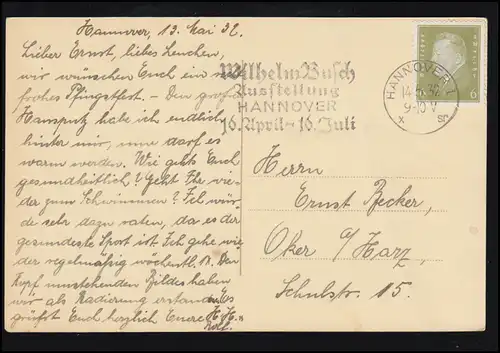 Hannover, 13. Mai 32.
Lieber Ernst, liebes Lenchen,
wir wünschen Euch ein
frohes Pfingstfest. - Den großen
Hausputz habe ich endlich
hinter mir, nun darf es
warm werden. Wie geht's Euch
gesundheitlich? Geht Ihr wie-
da zum Schwimmen? Ich wür-
de sehr dazu raten, da es der
gesundeste Sport ist. Ich gehe wie
der regelmäßig wöchentl. Den
Kopf umstehenden Bildes haben
wir als Radierung erstanden. Es
grüßt Euch herzlich Euere H. H.
Wilhelm Busch
Ausstellung
HANNOVER
16. April - 16. Juli
HANNOVER 1
14.5.32
9-10 V
x sc
6
Herrn
Ernst Becker,
Oker a/Harz,
Schulstr. 15.